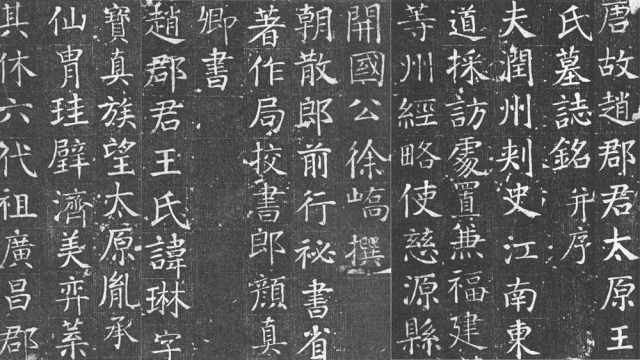 唐故趙郡君太原王
氏墓誌銘并序
夫潤州刾史江南東
道採訪處置兼福建
等州經略使慈源縣
開國公徐嶠撰
朝散郎前行祕書省
著作局挍書郎顔真
卿書
趙郡君王氏諱琳字
寶真族望太原胤承
仙胄珪璧濟美弈葉
其休六代祖廣昌郡